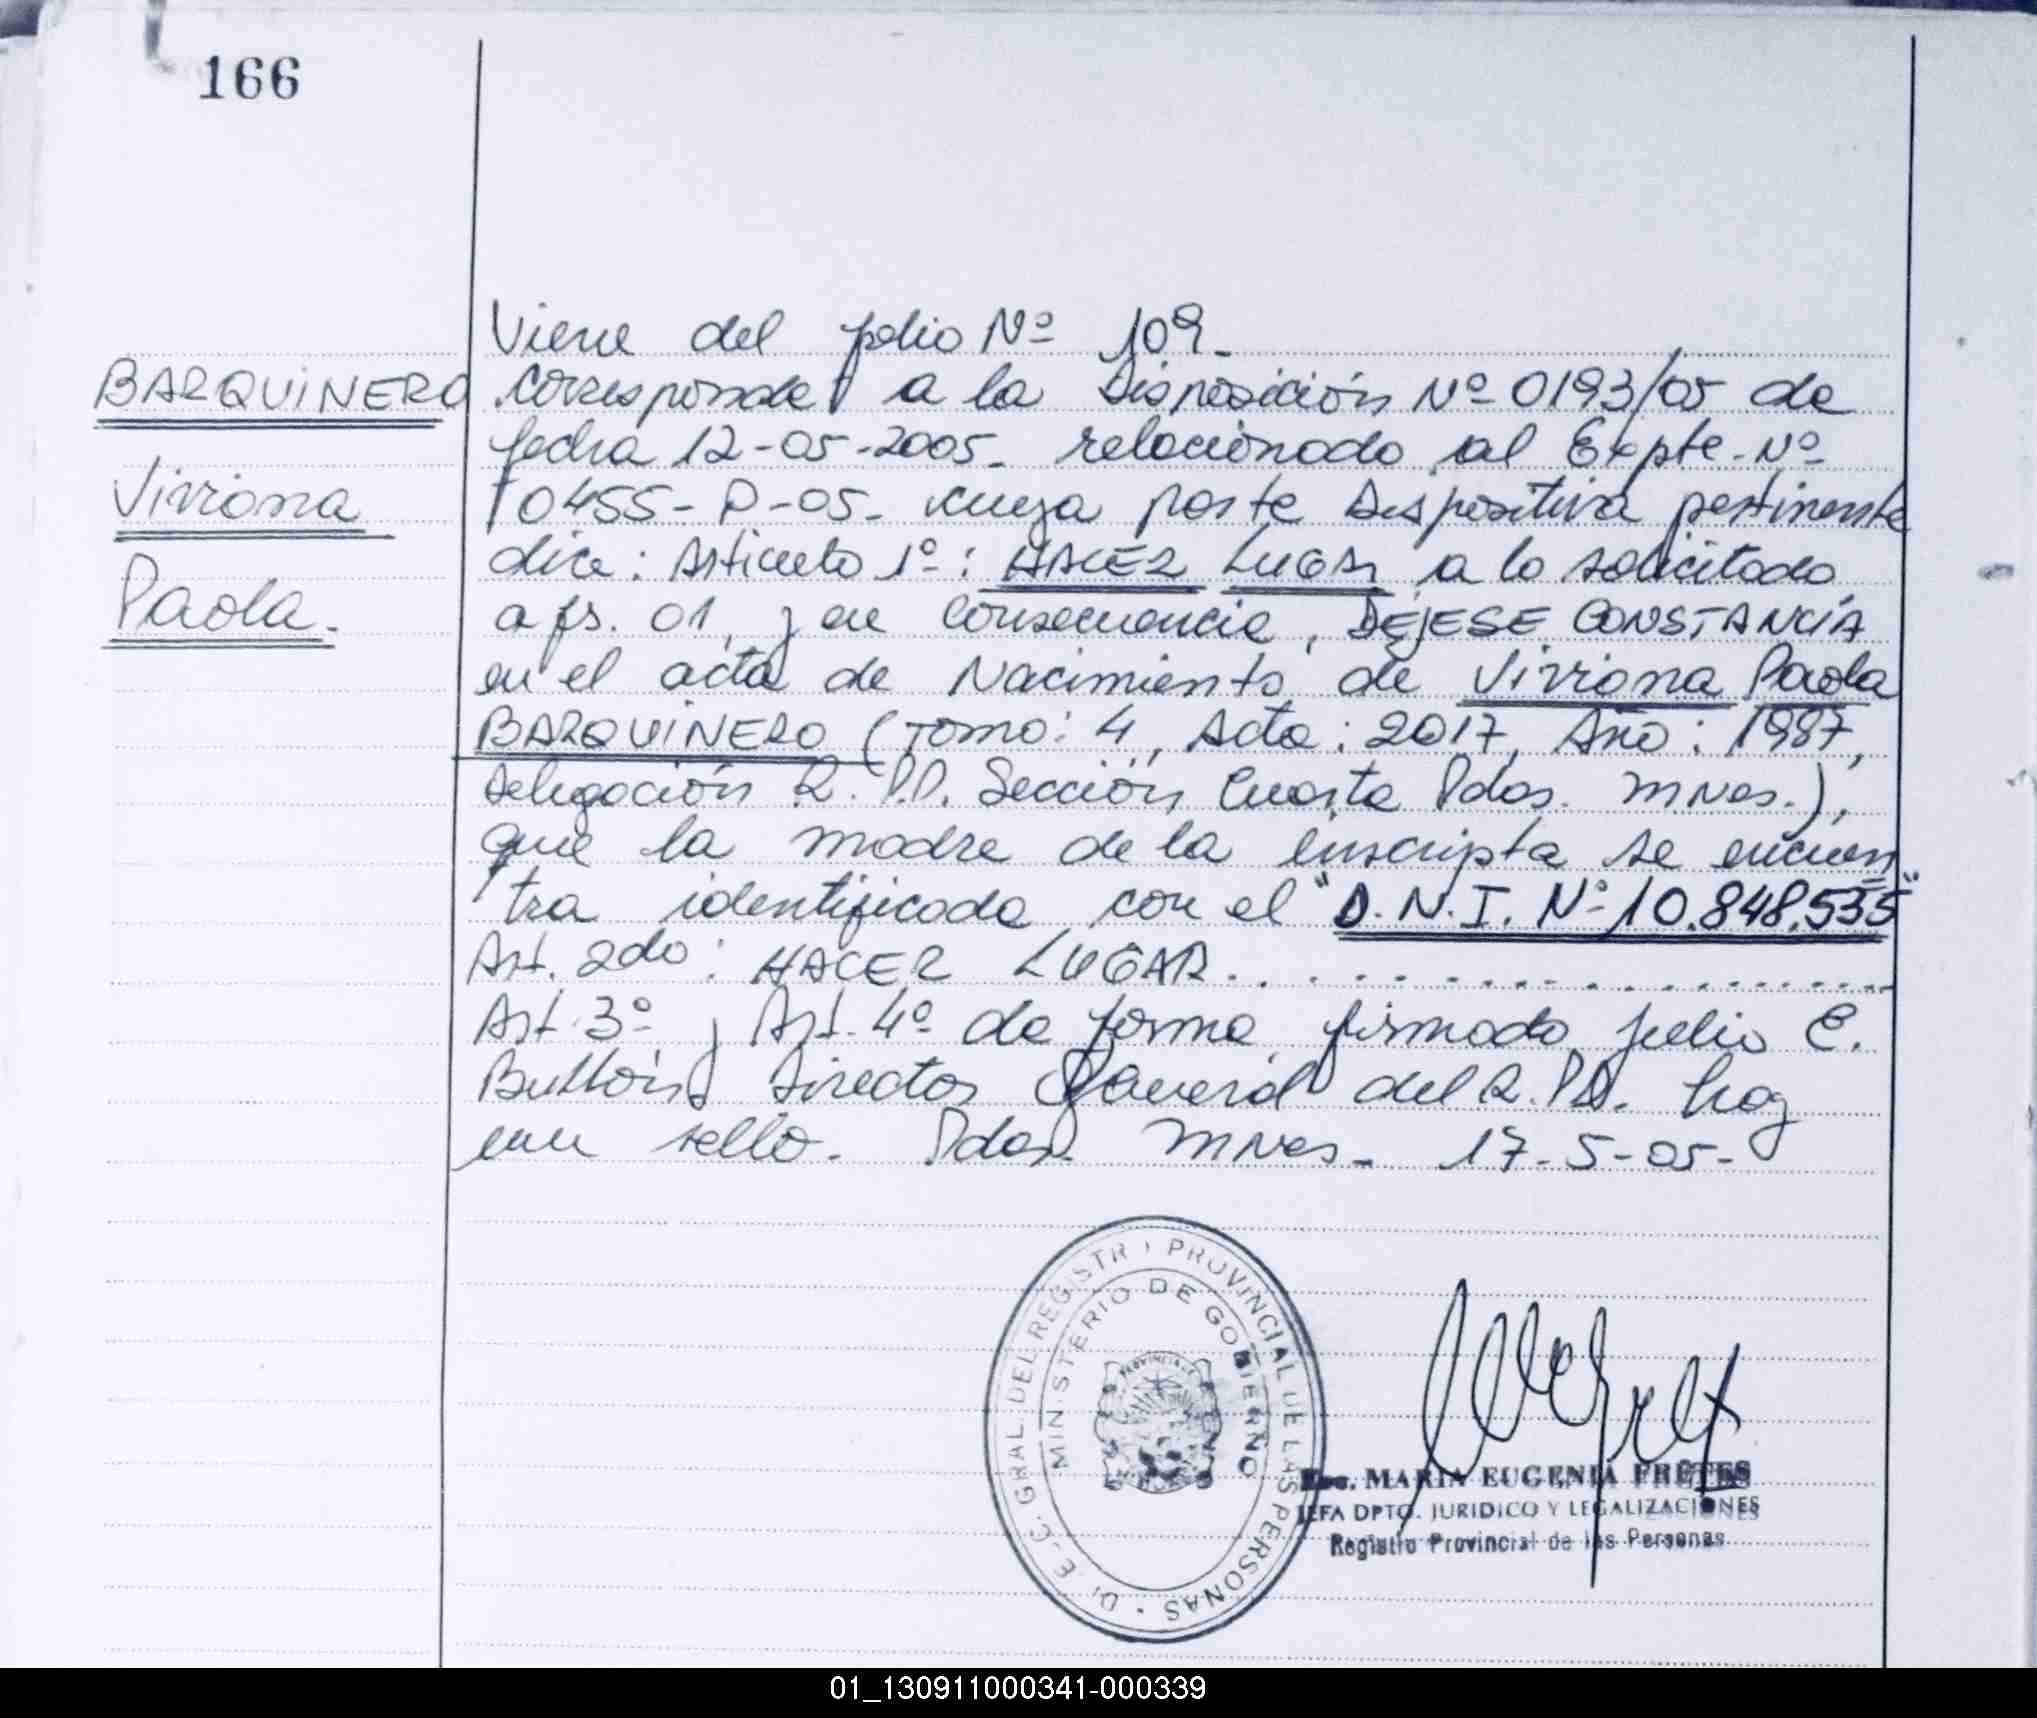 166
BARQUINERO
Viviana
Paola.
Viene del folio Nº 109.
Corresponde a la Disposición Nº 0193/05 de
fecha 12-05-2005. relacionado al Expte. Nº
10455-P-05. cuya parte Dispositiva pertinente
dice: Artículo 1º: HACER LUGAR a lo solicitado
a fs. 01, y en consecuencia, DÉJESE CONSTANCIA
en el acta de Nacimiento de Viviana Paola
BARQUINERO (Tomo: 4, Acta: 2017, Año: 1987,
Delegación R.P.P. Sección Cuarta Pdas. Mnes.),
que la madre de la inscripta se encuen
tra identificada con el "D.N.I. Nº 10.848.535"
Art. 2do: HACER LUGAR. . . . . . . . . . . . . . . . .
Art. 3º y Art. 4º de forma, firmado Julio C.
Director General del R.P.P. hay
un sello. Pdas. Mnes. 17-5-05-
D. E. C. GRAL. DEL REGISTRO PROVINCIAL DE LAS PERSONAS
MINISTERIO DE GOBIERNO
Esc. MARIA EUGENIA FRETES
JEFA DPTO. JURIDICO Y LEGALIZACIONES
Registro Provincial de las Personas
01_130911000341-000339